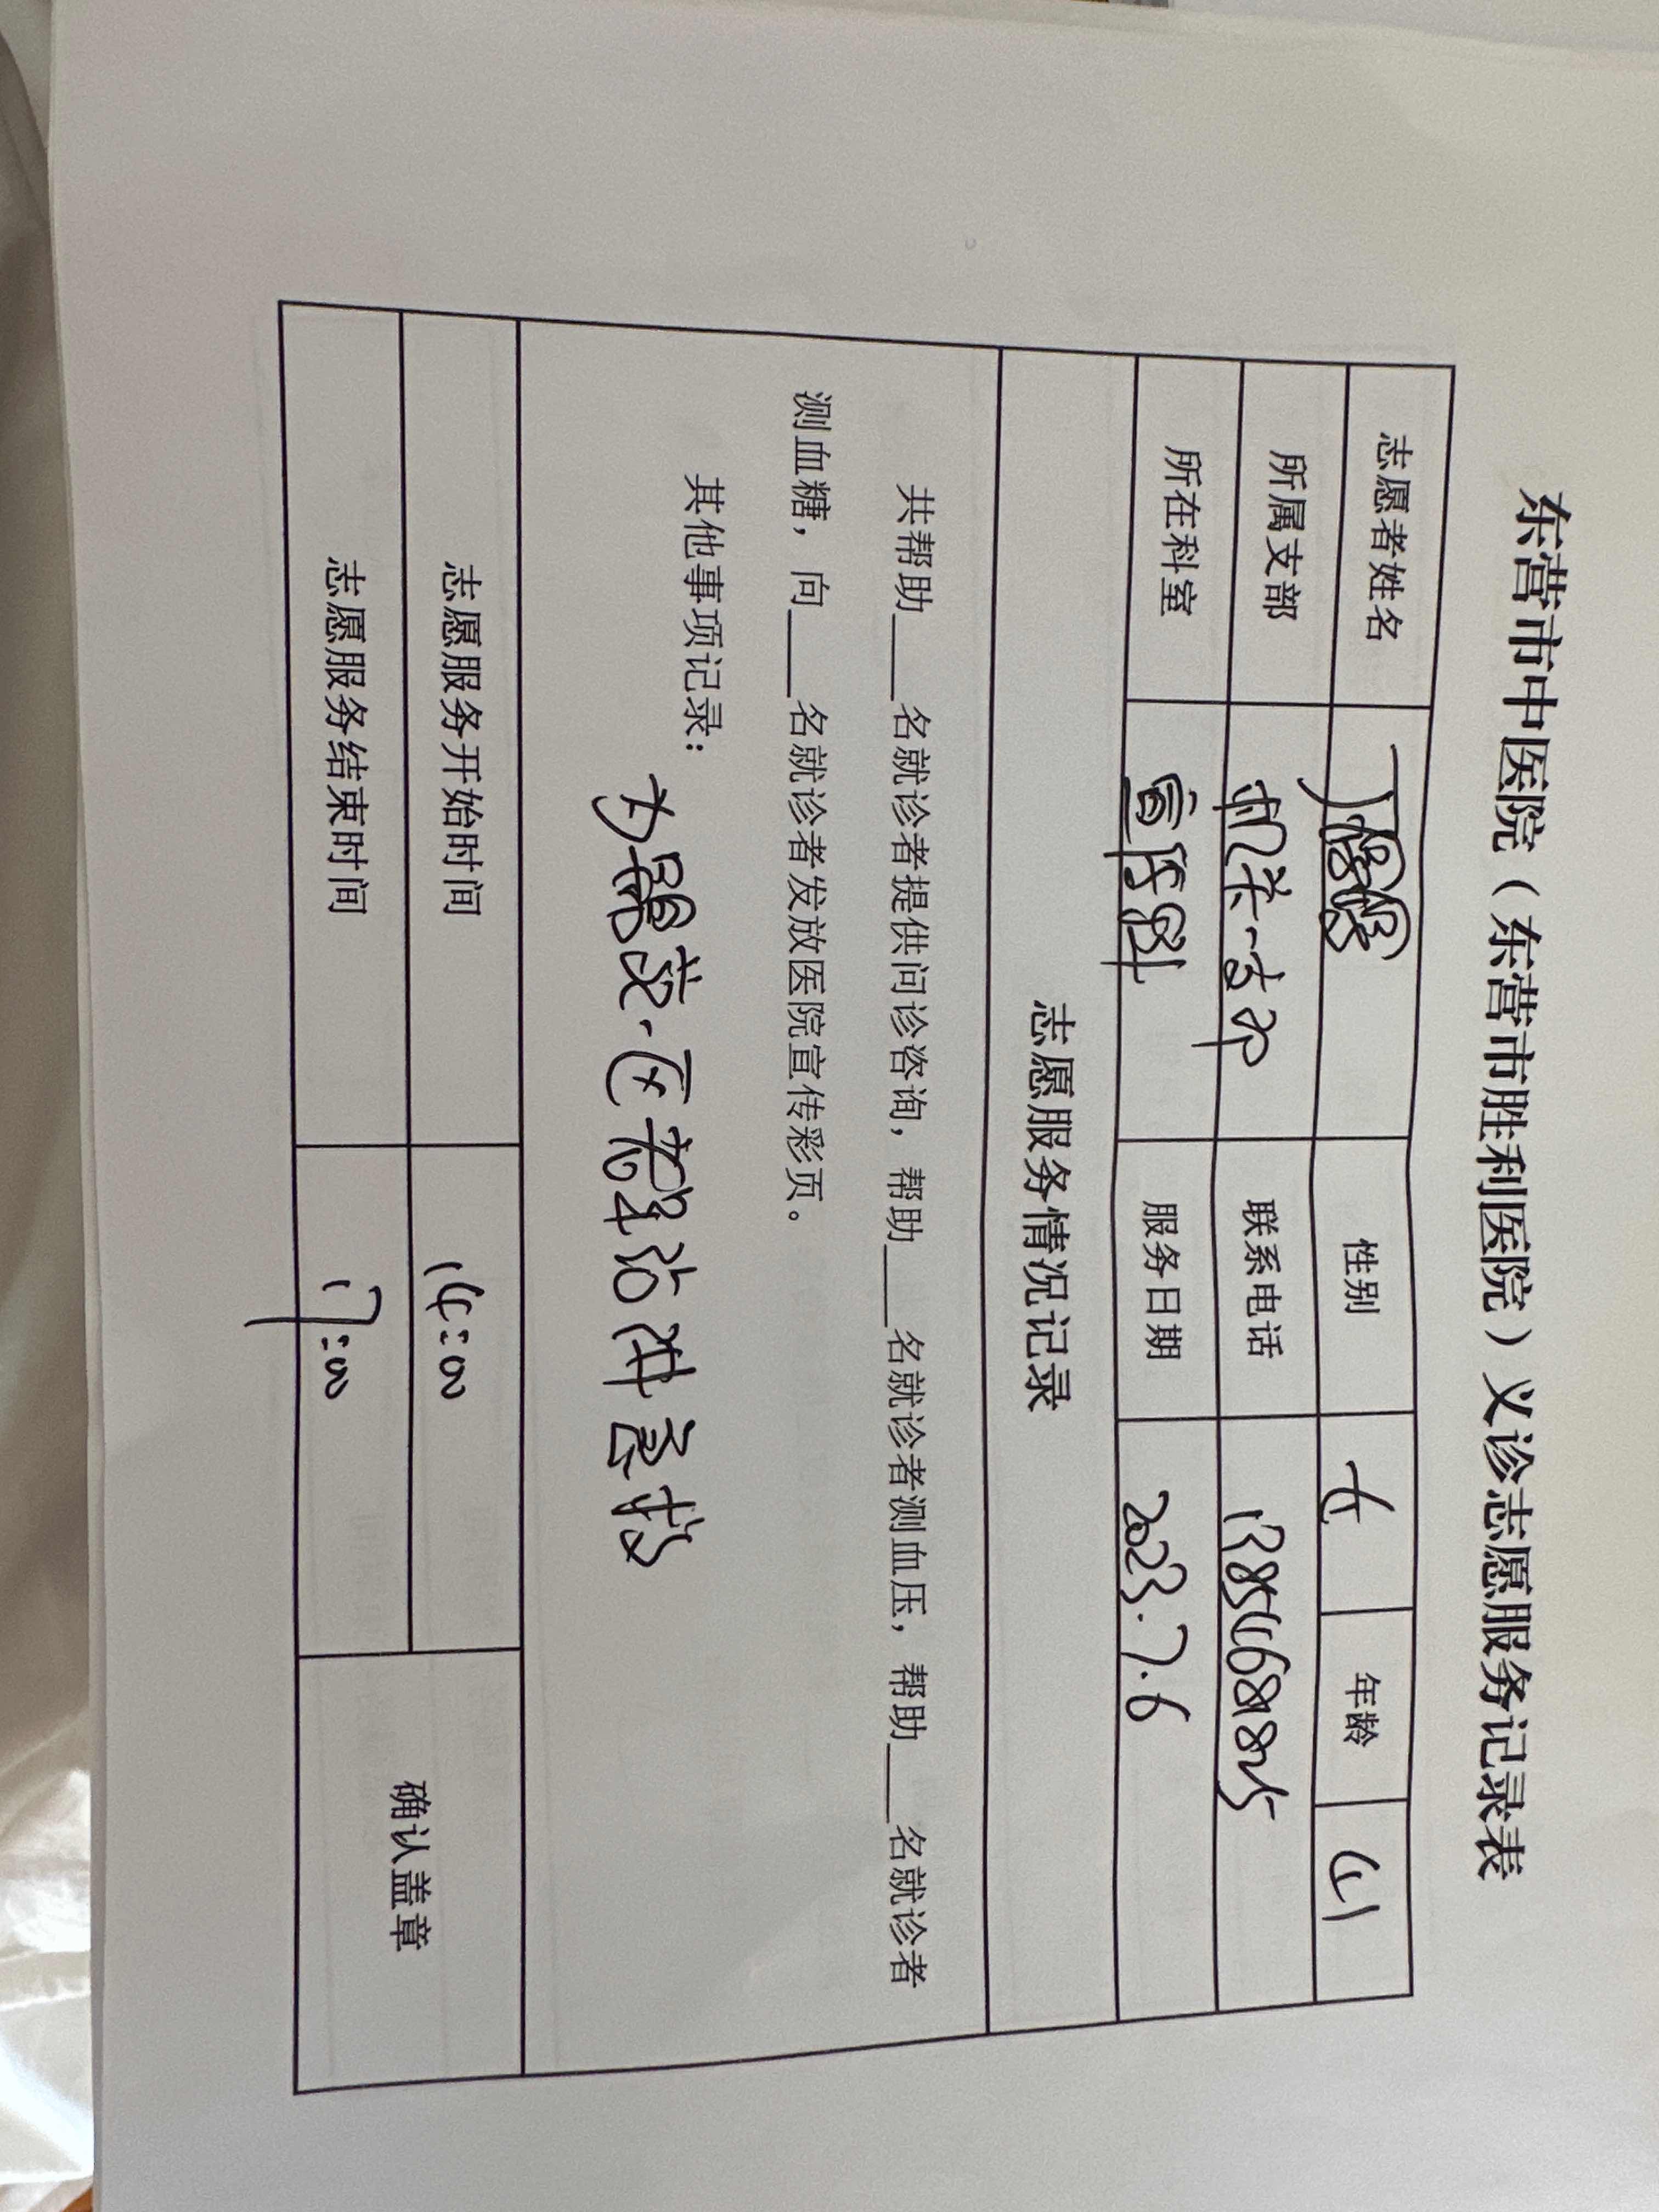 东营市中医院（东营市胜利医院）义诊志愿服务记录表
志愿者姓名 丁 性别 女 年龄 41
所属支部 机关一支部 联系电话
所在科室 宣传科 服务日期 2023.7.6
志愿服务情况记录
共帮助____名就诊者提供问诊咨询，帮助____名就诊者测血压，帮助____名就诊者
测血糖，向____名就诊者发放医院宣传彩页。
其他事项记录：
志愿服务开始时间 14:00
志愿服务结束时间 17:00
确认盖章